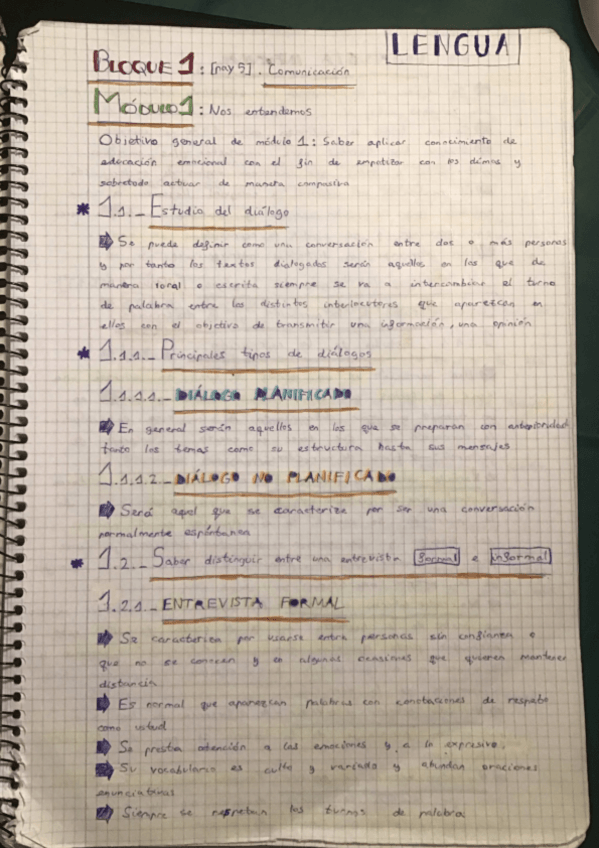 LENGUA
BLOQUE 1: [nay 5]. Comunicación
MÓDULO 1: Nos entendemos
Objetivo general de módulo 1: Saber aplicar conocimiento de
educación emocional con el fin de empatizar con los démas y
sobretodo actuar de manera compasiva
* 1.1._ Estudio del diálogo
Se puede definir como una conversación entre dos o más personas
y por tanto los textos dialogados serán aquellos en los que de
manera ronal o escrita siempre se va a intercambiar el turno
de palabra entre los distintos interlocutores que aparezcan en
ellos con el objetivo de transmitir una información, una opinión
* 1.1.1._ Principales tipos de diálogos
1.1.1.1._ DIÁLOGO PLANIFICADO
En general serán aquellos en los que se preparan con anterioridad
tanto los temas como su estructura hasta sus mensajes
1.1.1.2._ DIÁLOGO NO PLANIFICADO
Será aquel que se caracteriza por ser una conversación
normalmente espóntanea
* 1.2._ Saber distinguir entre una entrevista formal e informal
1.2.1._ ENTREVISTA FORMAL
Se caracteriza por usarse entre personas sin confianza o
que no se conocen y en algunas ocasiones que quieren mantener
distancia
Es normal que aparezcan palabras con connotaciones de respeto
como usted
Se presta atención a las emociones y a lo expresivo.
Su vocabulario es culto y variado y abundan oraciones
enunciativas
Siempre se respetan los turnos de palabra